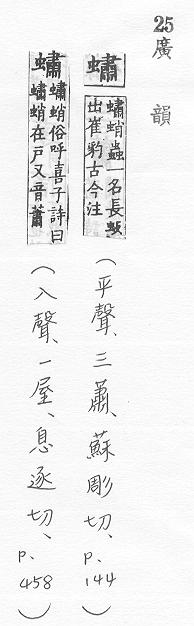 25 廣韻
蠨 蠨蛸蟲一名長蚑
出崔豹古今注
(平聲、三蕭、蘇彫切、p.144)
蠨 蠨蛸俗呼喜子詩曰
蠨蛸在戶又音蕭
(入聲、一屋、息逐切、p.458)